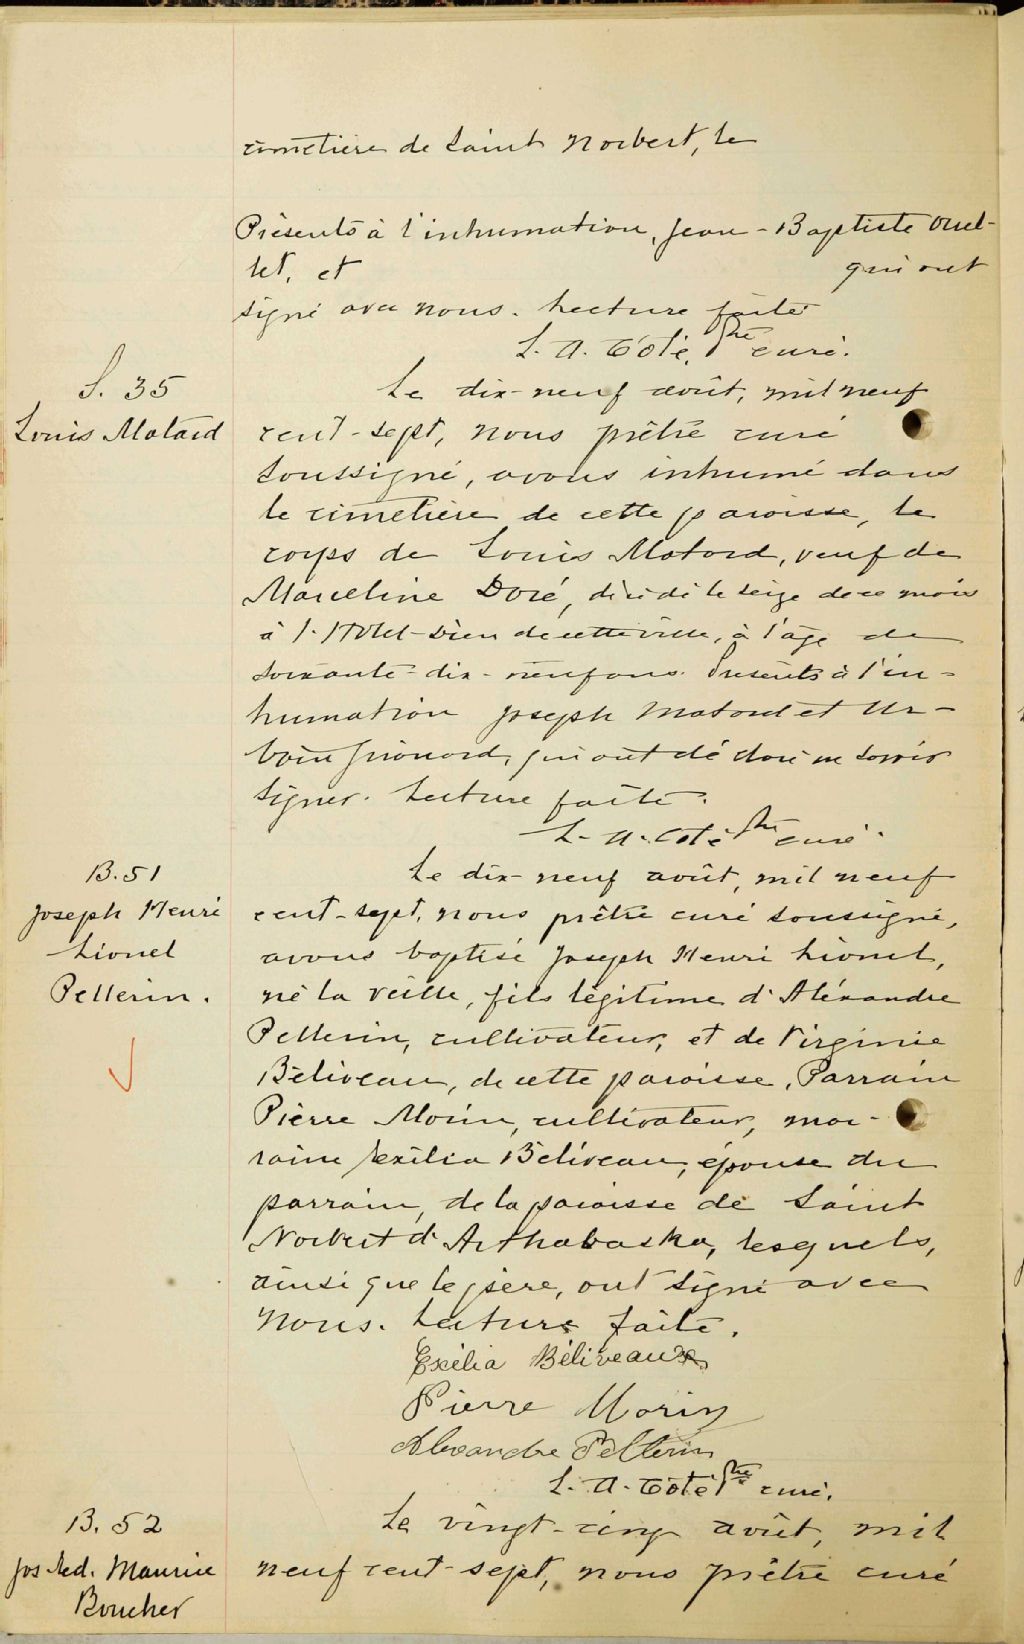 cimetière de Saint Norbert, le
Présents à l'inhumation, Jean-Baptiste Ouel-
let, et qui ont
signé avec nous. Lecture faite
L. A. Côté, Ptre curé.
S. 35
Louis Matard
Le dix-neuf août, mil neuf
cent-sept, nous prêtre curé
soussigné, avons inhumé dans
le cimetière de cette paroisse, le
corps de Louis Matard, veuf de
Marceline Doré, décédé le seize de ce mois
à l'Hôtel-Dieu de cette ville, à l'âge de
soixante-dix-neuf ans. Présents à l'in-
humation Joseph Matard et Ur-
bain qui ont déclaré ne savoir
signer. Lecture faite.
L. A. Côté Ptre curé.
B. 51
Joseph Henri
Lionel
Pellerin.
Le dix-neuf août, mil neuf
cent-sept, nous prêtre curé soussigné,
avons baptisé Joseph Henri Lionel,
né la veille, fils légitime d'Aléxandre
Pellerin, cultivateur, et de Virginie
Béliveau, de cette paroisse. Parrain
Pierre Morin, cultivateur, mar-
raine Exilia Béliveau, épouse du
parrain, de la paroisse de Saint
Norbert d'Arthabaska, lesquels,
ainsi que le père, ont signé avec
nous. Lecture faite.
Exélia Béliveaux
Pierre Morin
Alexandre Pellerin
L. A. Côté Ptre curé.
B. 52
Jos. Ed. Maurice
Boucher
Le vingt-cinq août, mil
neuf cent-sept, nous prêtre curé